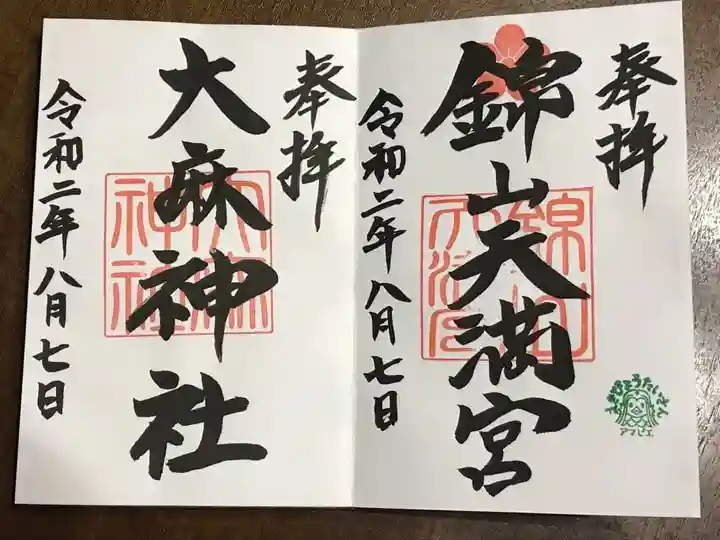 奉拝
錦山天満宮
令和二年八月七日
アマビエ
奉拝
大麻神社
令和二年八月七日
大麻神社